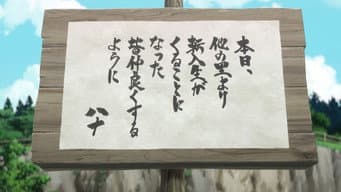 本日、
他の里より
新入生が
くることに
なった
皆仲良くする
ように
ハナ